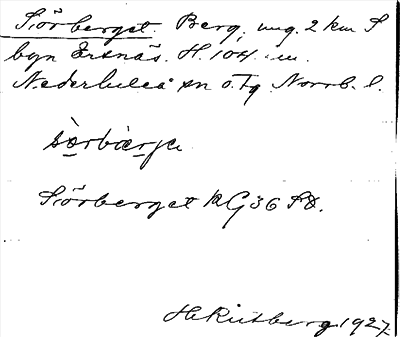 Sörberget. Berg, ung. 2 km S
byn Ersnäs. H. 104 m.
Nederluleå sn o. tg Norrb. l.
sö̀rbær̨je
Sörberget KG 36 SO.
H Rutberg 1927.